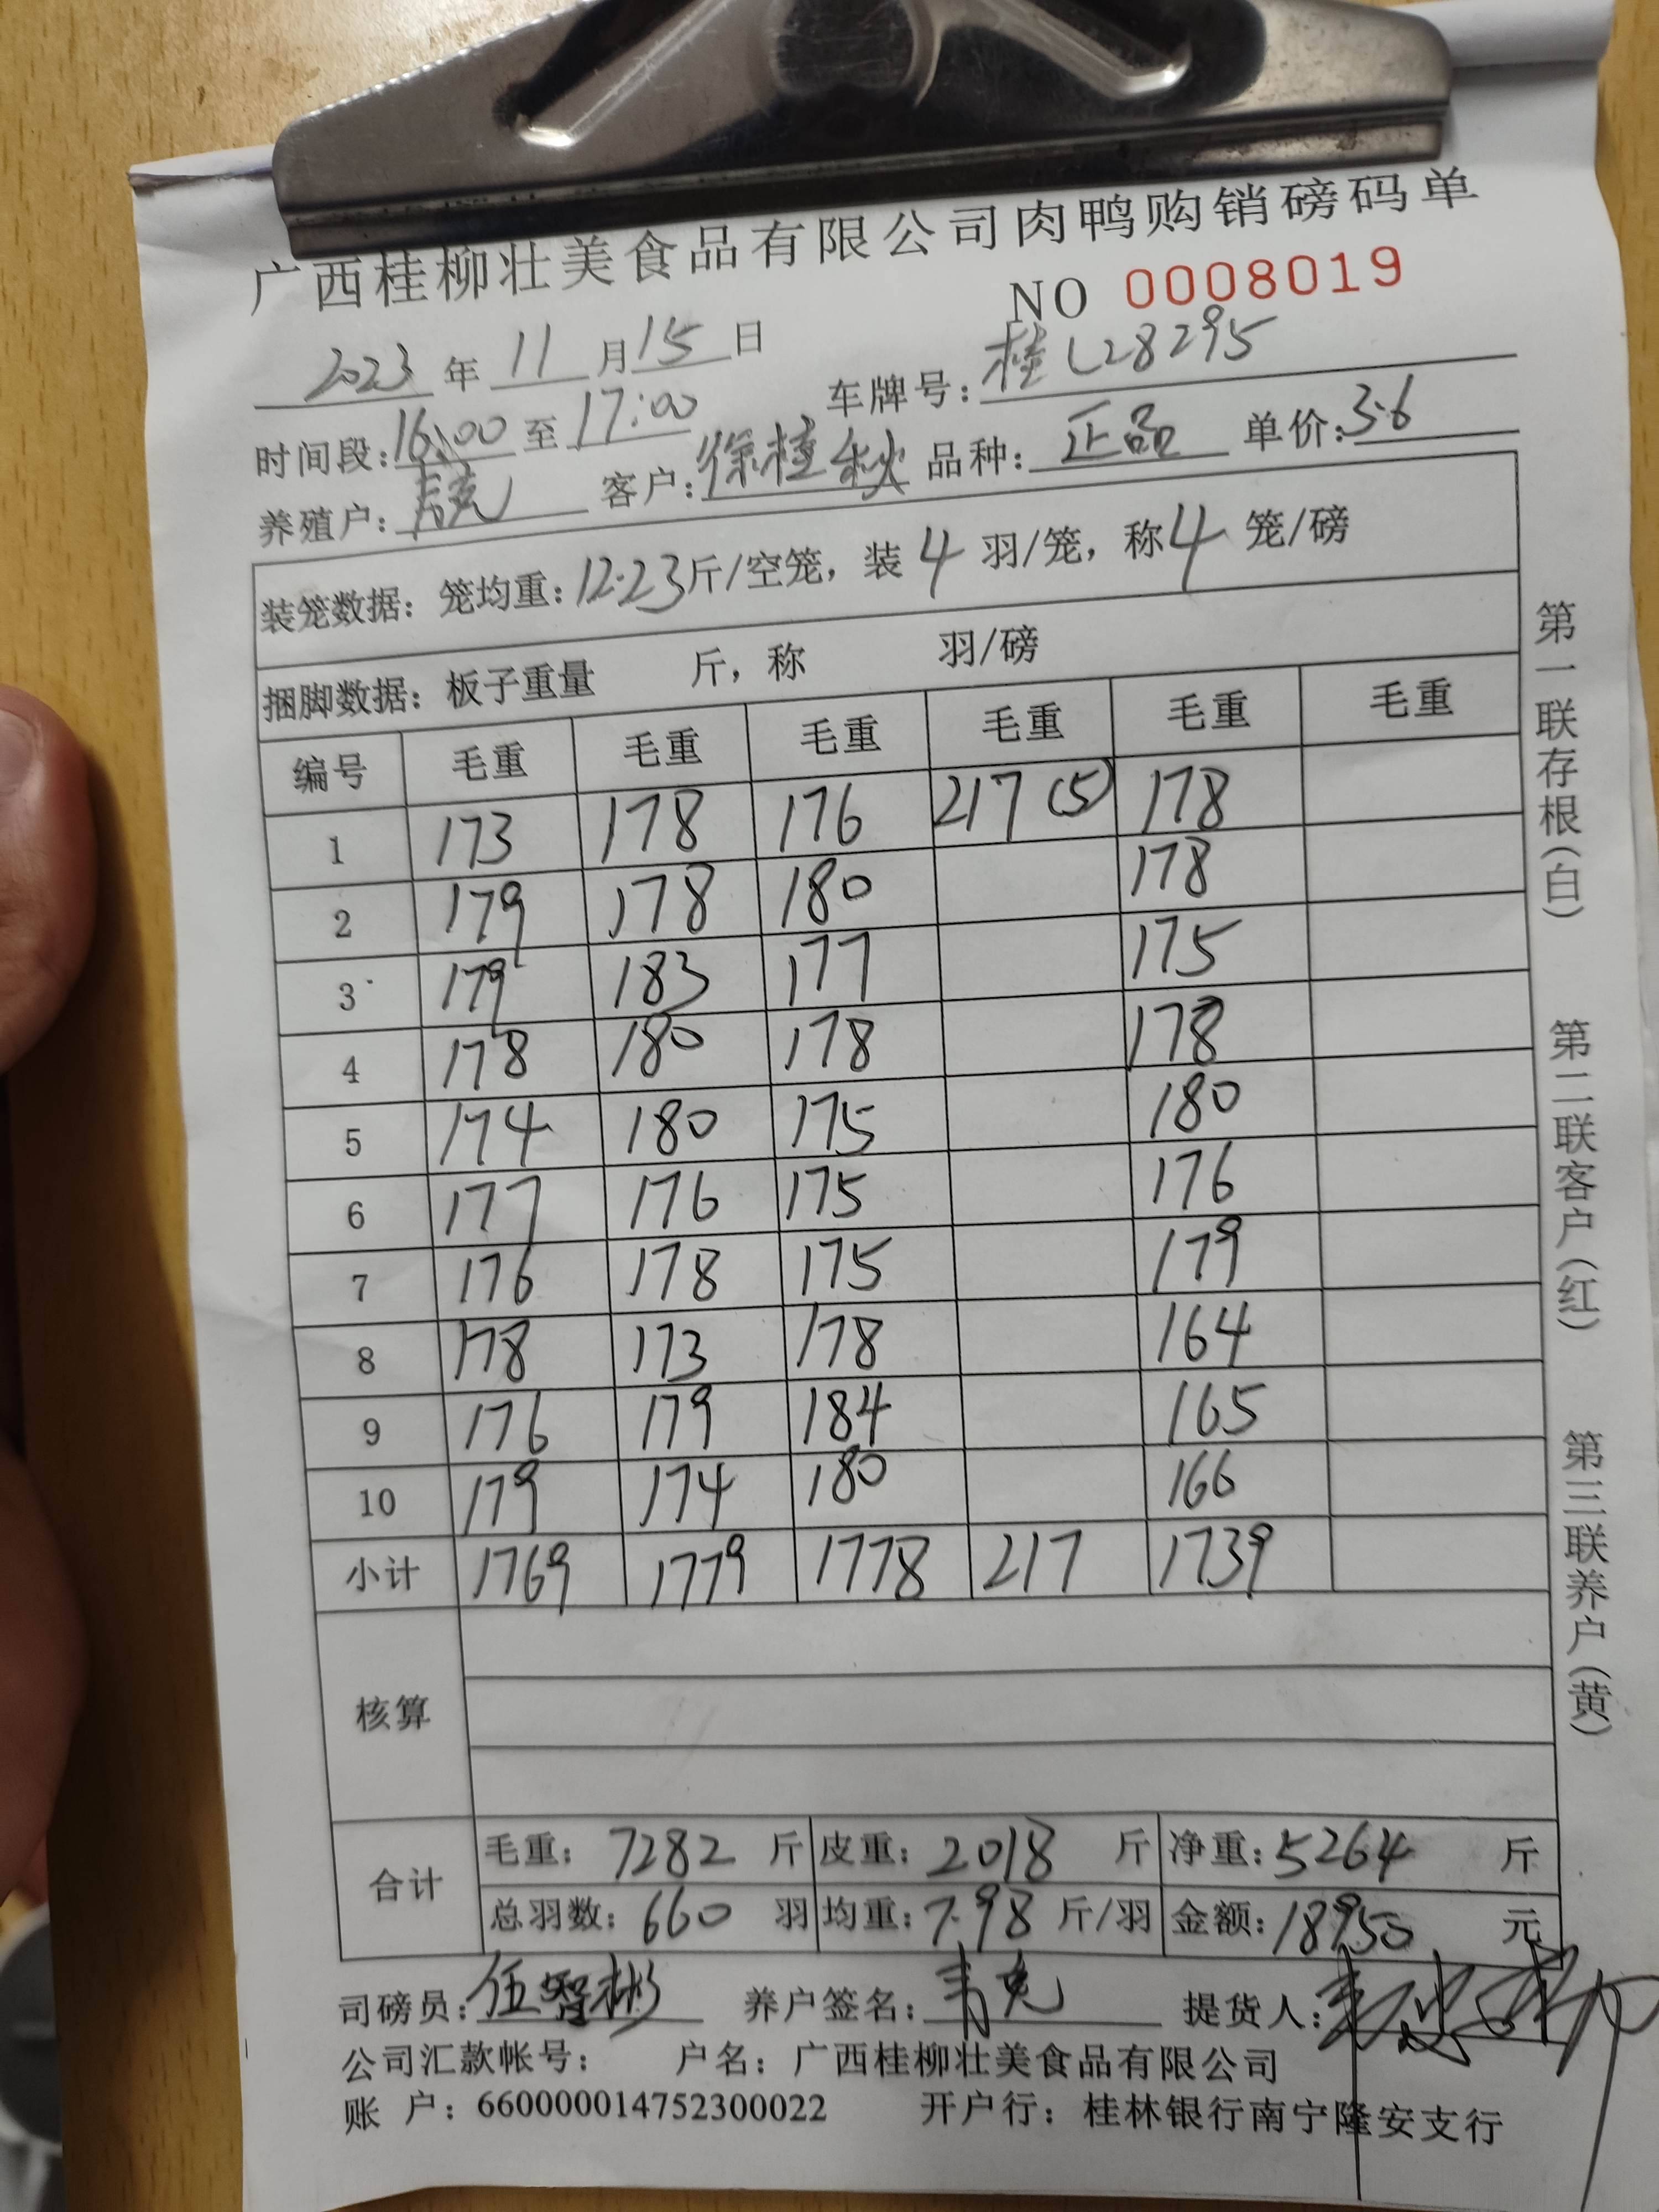 广西桂柳壮美食品有限公司肉鸭购销磅码单
NO 0008019
2023 年 11 月 15 日 车牌号: 桂L28295
时间段: 16:00 至 17:00
养殖户: 韦克 客户: 徐桂秋 品种: 正品 单价: 3.6
装笼数据: 笼均重: 12.23 斤/空笼, 装 4 羽/笼, 称 4 笼/磅
捆脚数据: 板子重量 斤, 称 羽/磅
编号 毛重 毛重 毛重 毛重 毛重 毛重
1 173 178 176 217 (5) 178
2 179 178 180 178
3 179 183 177 175
4 178 180 178 178
5 174 180 175 180
6 177 176 175 176
7 176 178 175 179
8 178 173 178 164
9 176 179 184 165
10 179 174 180 166
小计 1769 1779 1778 217 1739
核算
合计 毛重: 7282 斤 皮重: 2018 斤 净重: 5264 斤
总羽数: 660 羽 均重: 7.98 斤/羽 金额: 18950 元
司磅员: 伍智彬 养户签名: 韦克 提货人:
公司汇款帐号: 户名: 广西桂柳壮美食品有限公司
账 户: 660000014752300022 开户行: 桂林银行南宁隆安支行
第一联存根(白) 第二联客户(红) 第三联养户(黄)